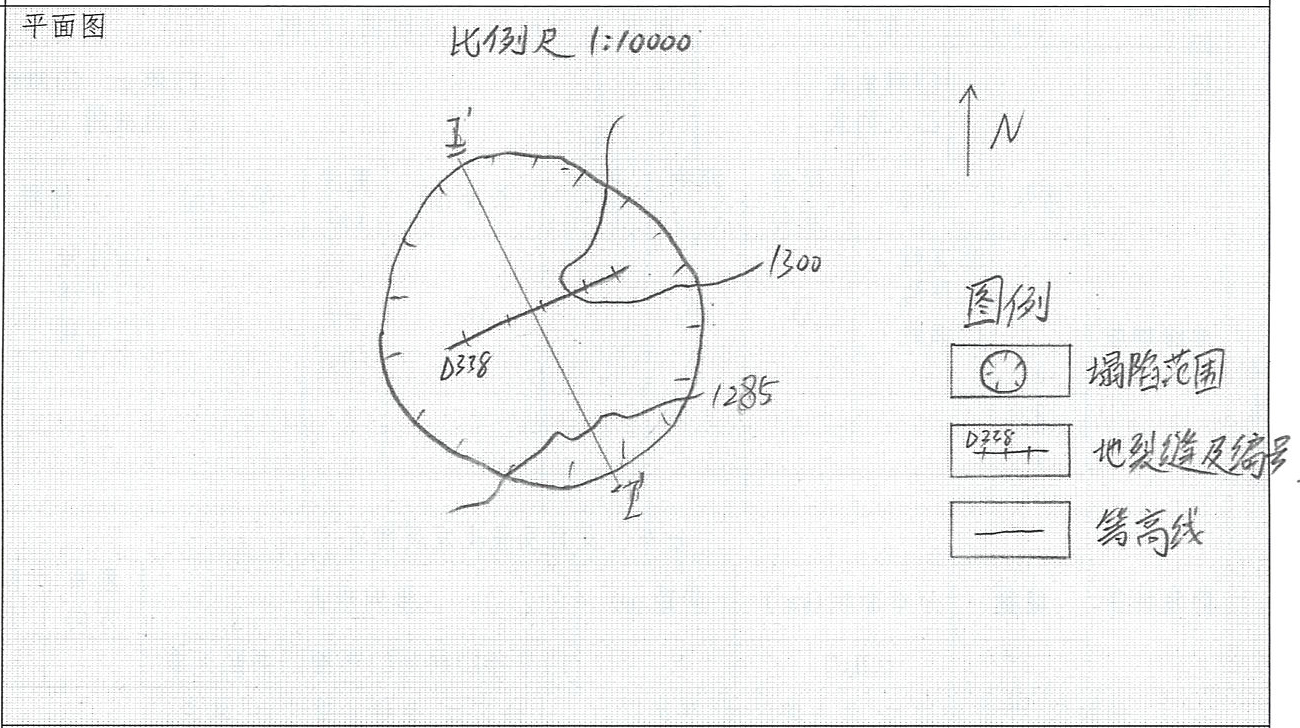 平面图
比例尺 1:10000
I'
N
1300
D338
1285
I
图例
塌陷范围
D338
地裂缝及编号
等高线